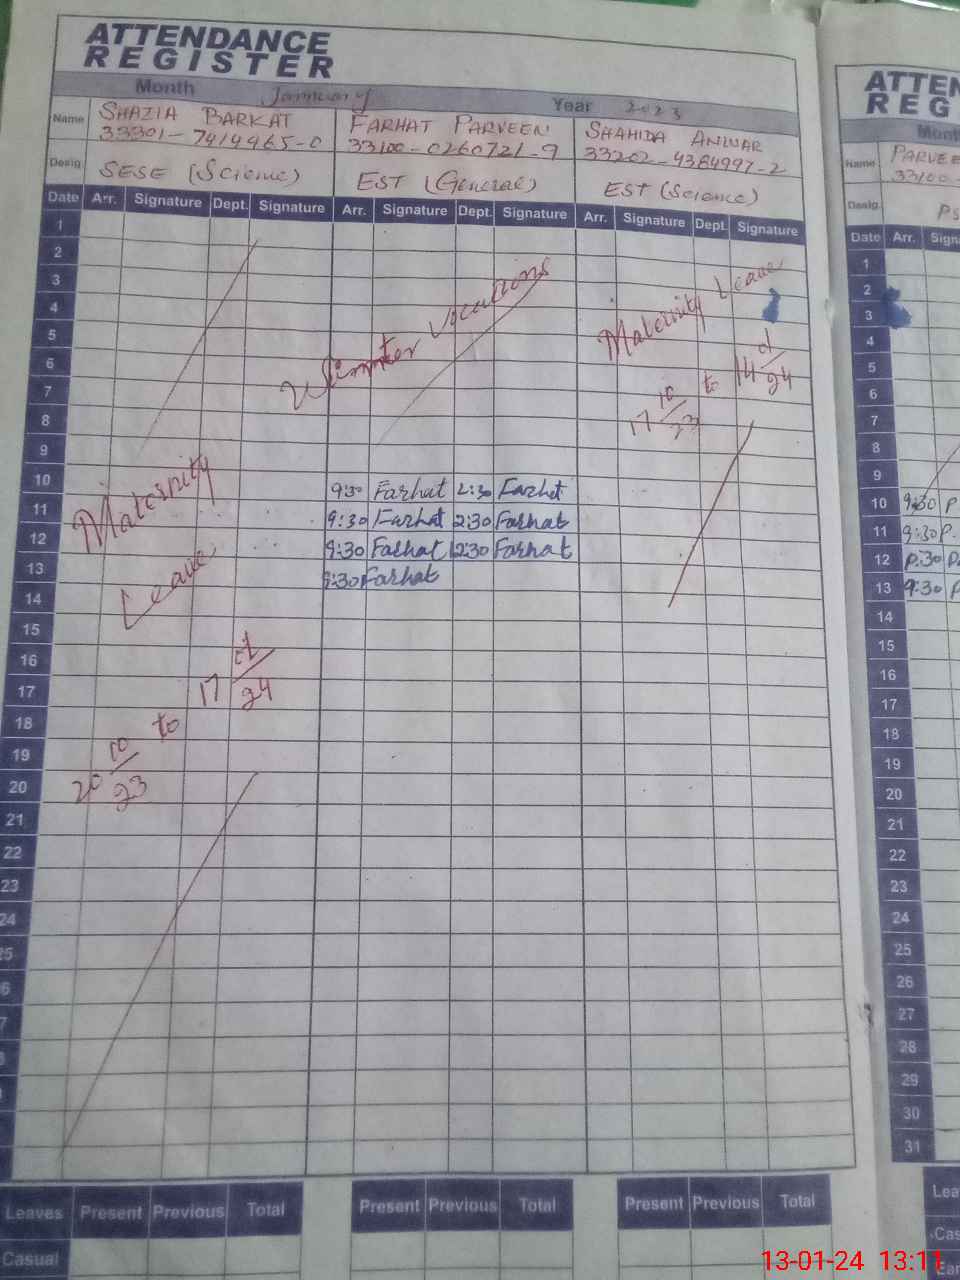 ATTENDANCE
REGISTER
Month January Year 2023
Name SHAZIA BARKAT FARHAT PARVEEN SHAHIDA ANWAR
33301-7414965-0 33100-0260721-9 33202-4384997-2
Desig. SESE (Science) EST (General) EST (Science)
Date Arr. Signature Dept. Signature Arr. Signature Dept. Signature Arr. Signature Dept. Signature
1
2
3
4
5
6
7
8
9
10 9:30 Farhat 2:30 Farhat
11 9:30 Farhat 2:30 Farhat
12 9:30 Farhat 12:30 Farhat
13 9:30 Farhat
14
15
16
17
18
19
20
21
22
23
24
25
6
7
8
Maternity
Leave
20 10/23 to 17 01/24
Winter Vocations
Maternity Leave
17 10/23 to 14 01/24
Leaves Present Previous Total Present Previous Total Present Previous Total
Casual
ATTEN
REG
Month
Name PARVEE
33100-
Desig. PS
Date Arr. Signa
1
2
3
4
5
6
7
8
9
10 9:30 P
11 9:30 P.
12 9:30 P
13 9:30 P
14
15
16
17
18
19
20
21
22
23
24
25
26
27
28
29
30
31
Lea
Cas
Ear
13-01-24 13:11